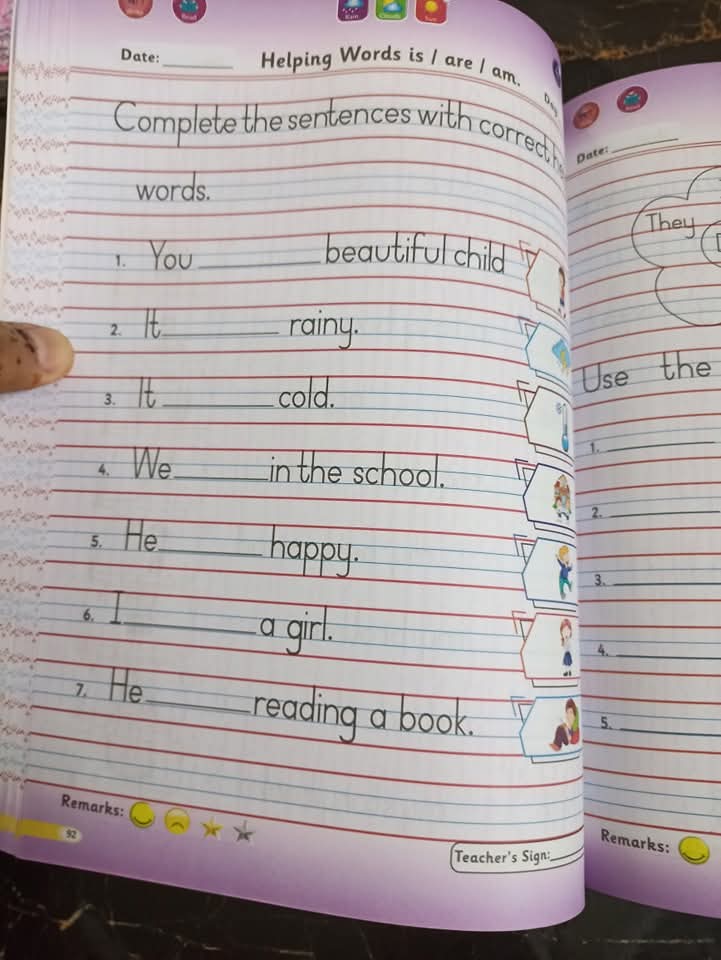 Read
Rain
Clouds
Sun
Date: ________
Helping Words is / are / am.
Complete the sentences with correct
words.
1. You ________ beautiful child
2. It ________ rainy.
3. It ________ cold.
4. We ________ in the school.
5. He ________ happy.
6. I ________ a girl.
7. He ________ reading a book.
Remarks:
92
Teacher's Sign:____
Read
Date: ________
They
Use the
1. ________
2. ________
3. ________
4. ________
5. ________
Remarks: